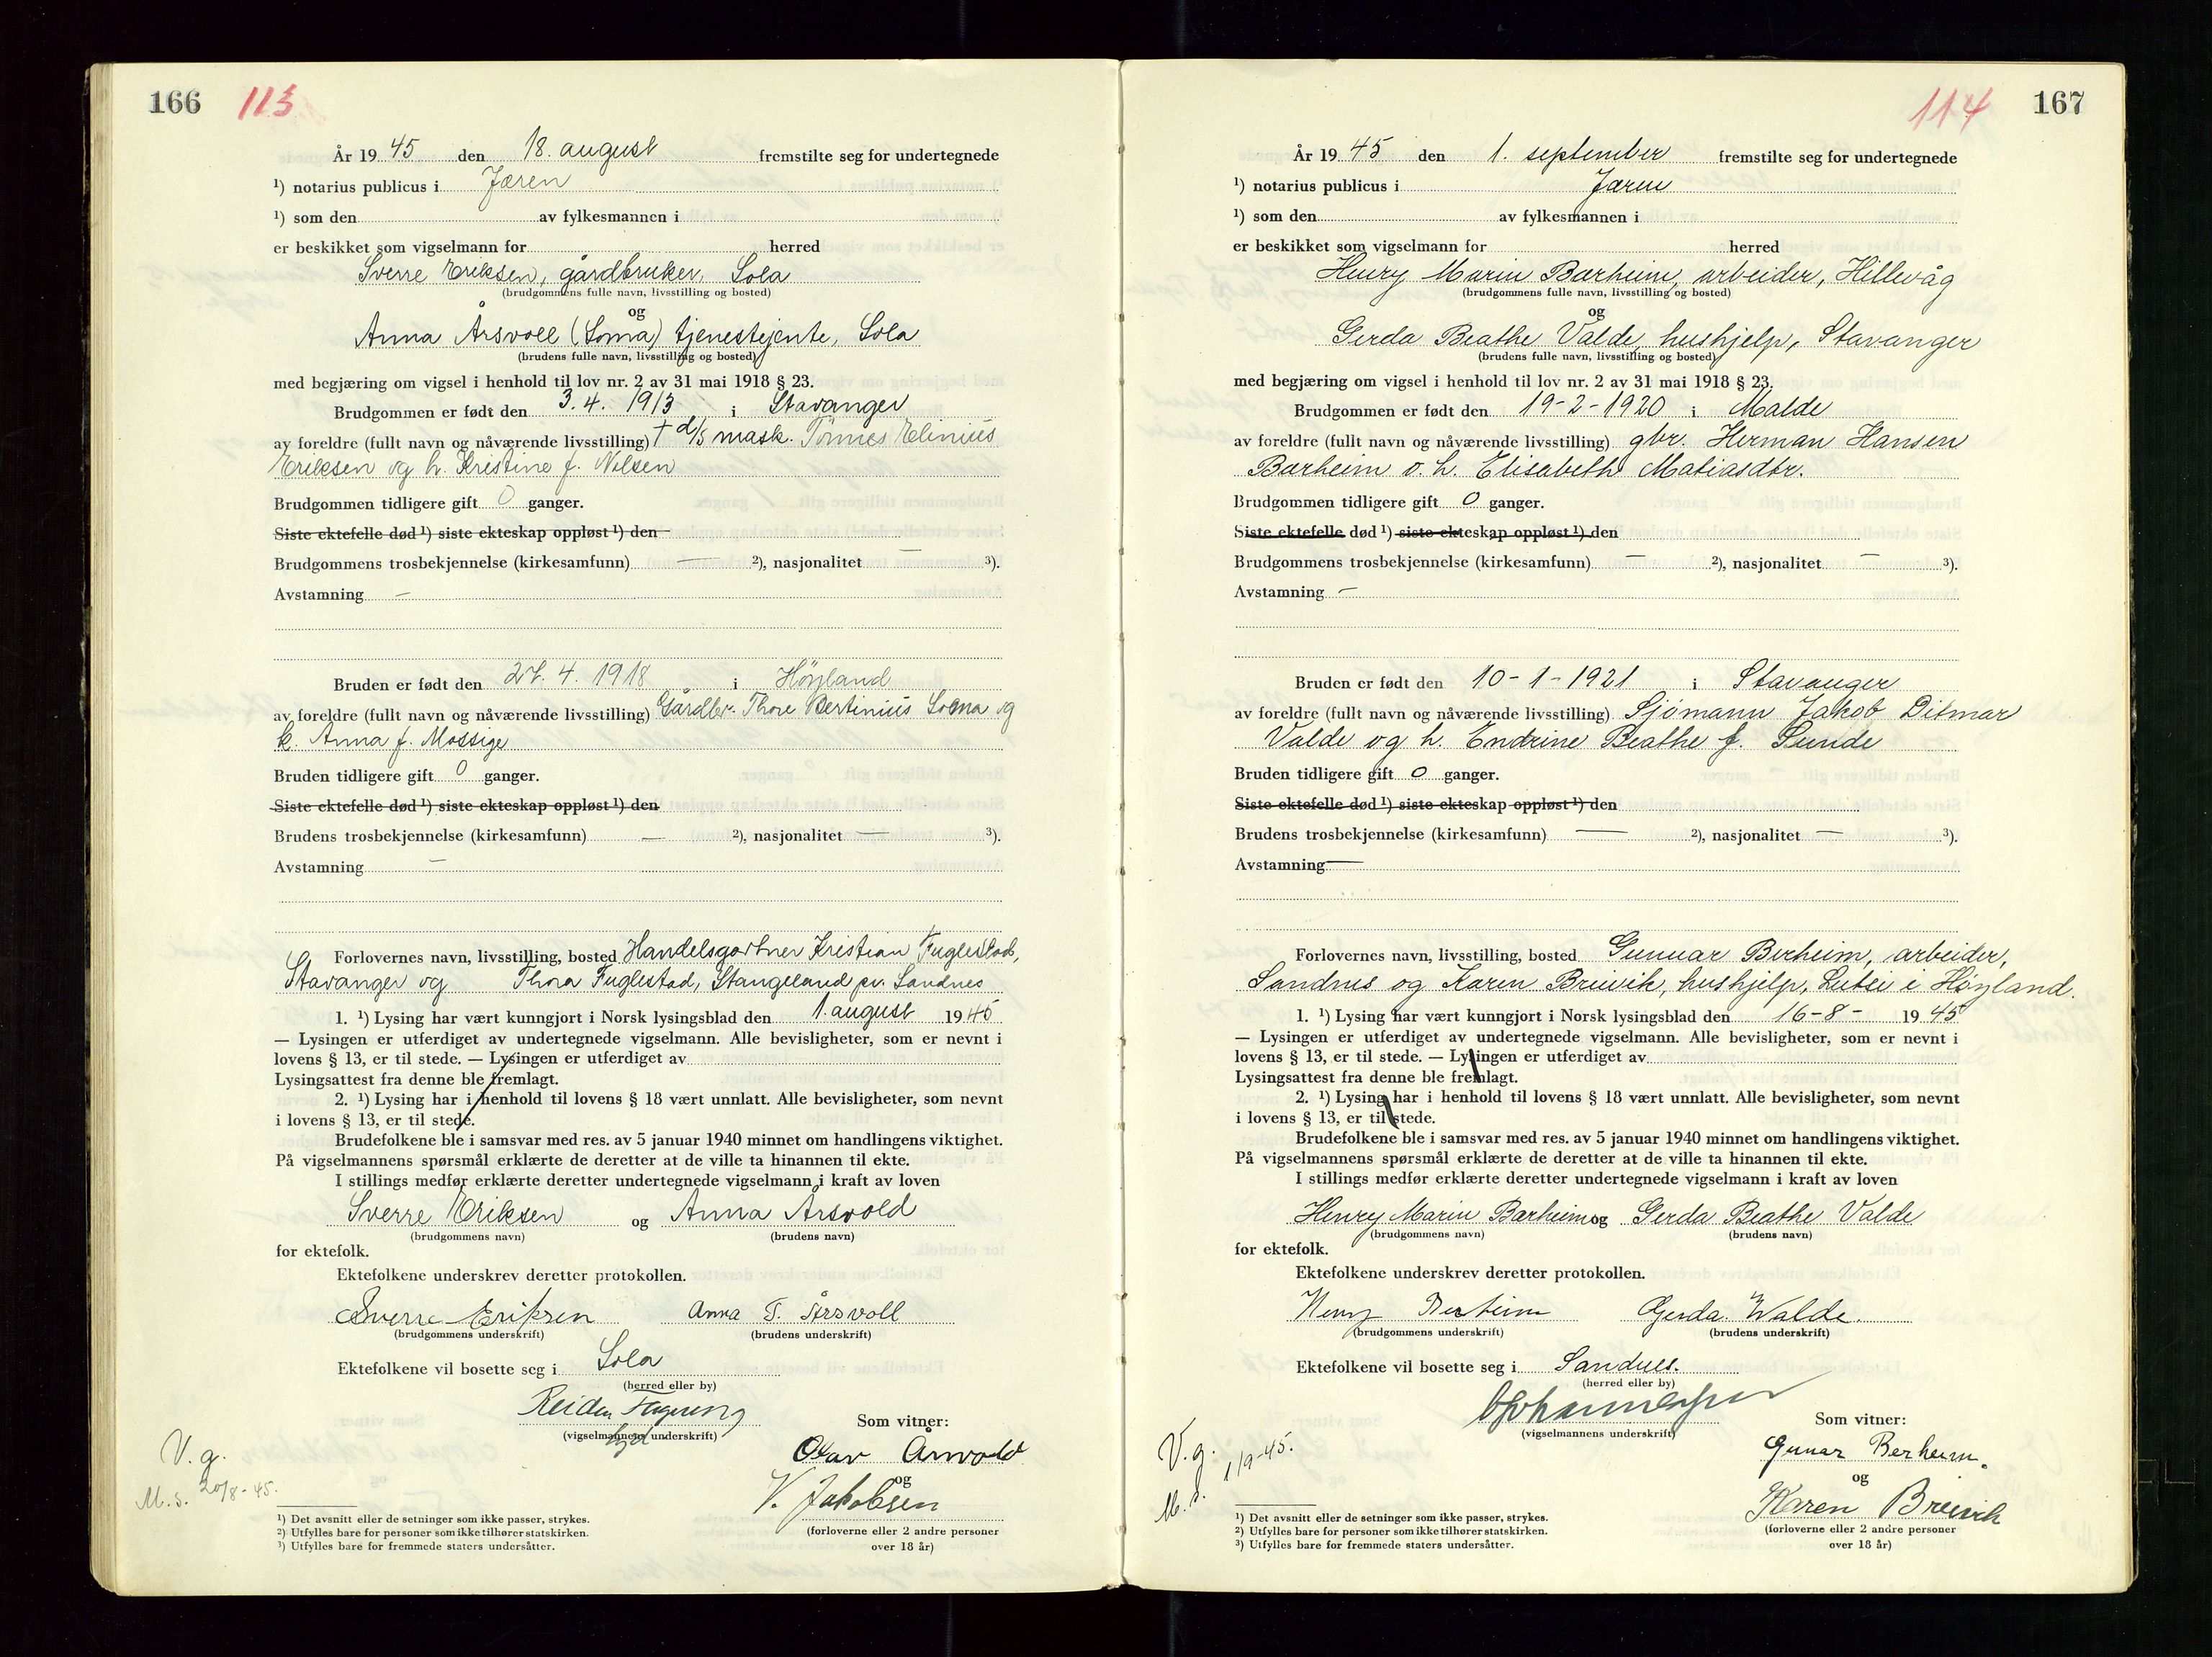 166 113
År 19 45 den 18. august fremstilte seg for undertegnede
¹) notarius publicus i Jæren
¹) som den av fylkesmannen i
er beskikket som vigselmann for herred
Sverre Eriksen, gårdbruker, Sola
(brudgommens fulle navn, livsstilling og bosted)
og
Anna Årsvoll (Soma) tjenestejente, Sola
(brudens fulle navn, livsstilling og bosted)
med begjæring om vigsel i henhold til lov nr. 2 av 31 mai 1918 § 23.
Brudgommen er født den 3.4. 1913 i Stavanger
av foreldre (fullt navn og nåværende livsstilling) + d/s mask. Tönnes Elinius
Eriksen og h. Kristine f. Nilsen
Brudgommen tidligere gift 0 ganger.
Siste ektefelle død ¹) siste ekteskap oppløst ¹) den
Brudgommens trosbekjennelse (kirkesamfunn) — ²), nasjonalitet — ³).
Avstamning —
Bruden er født den 27. 4. 1918 i Höyland
av foreldre (fullt navn og nåværende livsstilling) Gårdbr. Thore Bertinius Soma og
k. Anna f. Mossige
Bruden tidligere gift 0 ganger.
Siste ektefelle død ¹) siste ekteskap oppløst ¹) den
Brudens trosbekjennelse (kirkesamfunn) — ²), nasjonalitet — ³).
Avstamning —
Forlovernes navn, livsstilling, bosted Handelsgartner Kristian Fuglestad,
Stavanger og Thora Fuglestad, Stangeland pr. Sandnes
1. ¹) Lysing har vært kunngjort i Norsk lysingsblad den 1. august 19 45
— Lysingen er utferdiget av undertegnede vigselmann. Alle bevisligheter, som er nevnt i
lovens § 13, er til stede. — Lysingen er utferdiget av
Lysingsattest fra denne ble fremlagt.
2. ¹) Lysing har i henhold til lovens § 18 vært unnlatt. Alle bevisligheter, som nevnt
i lovens § 13, er til stede.
Brudefolkene ble i samsvar med res. av 5 januar 1940 minnet om handlingens viktighet.
På vigselmannens spørsmål erklærte de deretter at de ville ta hinannen til ekte.
I stillings medfør erklærte deretter undertegnede vigselmann i kraft av loven
Sverre Eriksen og Anna Årsvold
(brudgommens navn) (brudens navn)
for ektefolk.
Ektefolkene underskrev deretter protokollen.
Sverre Eriksen Anna T. Årsvoll
(brudgommens underskrift) (brudens underskrift)
Ektefolkene vil bosette seg i Sola
(herred eller by)
Reidar
(vigselmannens underskrift)
Som vitner:
Olav Årsvold
og
V. Jakobsen
(forloverne eller 2 andre personer
over 18 år)
V. g.
M. S. 20/8-45.
¹) Det avsnitt eller de setninger som ikke passer, strykes.
²) Utfylles bare for personer som ikke tilhører statskirken.
³) Utfylles bare for fremmede staters undersåtter.
114 167
År 19 45 den 1. september fremstilte seg for undertegnede
¹) notarius publicus i Jæren
¹) som den av fylkesmannen i
er beskikket som vigselmann for herred
Henry Marin Bærheim, arbeider, Hillevåg
(brudgommens fulle navn, livsstilling og bosted)
og
Gerda Beathe Valde, hushjelp, Stavanger
(brudens fulle navn, livsstilling og bosted)
med begjæring om vigsel i henhold til lov nr. 2 av 31 mai 1918 § 23.
Brudgommen er født den 19-2-1920 i Malde
av foreldre (fullt navn og nåværende livsstilling) gbr. Herman Hansen
Bærheim o. h. Elisabeth Matiasdtr.
Brudgommen tidligere gift 0 ganger.
Siste ektefelle død ¹) siste ekteskap oppløst ¹) den
Brudgommens trosbekjennelse (kirkesamfunn) — ²), nasjonalitet — ³).
Avstamning —
Bruden er født den 10-1-1921 i Stavanger
av foreldre (fullt navn og nåværende livsstilling) Sjömann Jakob Ditmar
Valde og h. Endrine Beathe f. Sunde
Bruden tidligere gift 0 ganger.
Siste ektefelle død ¹) siste ekteskap oppløst ¹) den
Brudens trosbekjennelse (kirkesamfunn) — ²), nasjonalitet — ³).
Avstamning —
Forlovernes navn, livsstilling, bosted Gunnar Berheim, arbeider,
Sandnes og Karen Breivik, hushjelp, Lutsi i Høyland.
1. ¹) Lysing har vært kunngjort i Norsk lysingsblad den 16-8- 19 45
— Lysingen er utferdiget av undertegnede vigselmann. Alle bevisligheter, som er nevnt i
lovens § 13, er til stede. — Lysingen er utferdiget av
Lysingsattest fra denne ble fremlagt.
2. ¹) Lysing har i henhold til lovens § 18 vært unnlatt. Alle bevisligheter, som nevnt
i lovens § 13, er til stede.
Brudefolkene ble i samsvar med res. av 5 januar 1940 minnet om handlingens viktighet.
På vigselmannens spørsmål erklærte de deretter at de ville ta hinannen til ekte.
I stillings medfør erklærte deretter undertegnede vigselmann i kraft av loven
Henry Marin Bærheim og Gerda Beathe Valde
(brudgommens navn) (brudens navn)
for ektefolk.
Ektefolkene underskrev deretter protokollen.
Henry Berheim Gerda Walde.
(brudgommens underskrift) (brudens underskrift)
Ektefolkene vil bosette seg i Sandnes.
(herred eller by)
(vigselmannens underskrift)
Som vitner:
Gunar Berheim.
og
Karen Breivik
(forloverne eller 2 andre personer
over 18 år)
V. g.
M. S. 1/9-45.
¹) Det avsnitt eller de setninger som ikke passer, strykes.
²) Utfylles bare for personer som ikke tilhører statskirken.
³) Utfylles bare for fremmede staters undersåtter.